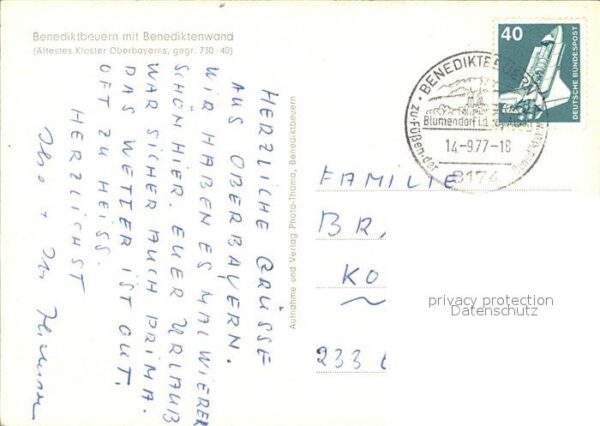 Benediktbeuern mit Benediktenwand
(Ältestes Kloster Oberbayerns, gegr. 730-40)
HERZLICHE GRÜSSE
AUS OBERBAYERN.
WIR HABEN ES MAL WIEDER
SCHÖN HIER. EUER URLAUB
WAR SICHER AUCH PRIMA.
DAS WETTER IST GUT,
OFT ZU HEISS.
HERZLICHST
Aufnahme und Verlag Photo-Thoma, Benediktbeuern
40
DEUTSCHE BUNDESPOST
BENEDIKTBEUERN
Blumendorf i.d.
14.-9.77-18
zu-Füßen-der
8174
FAMILIE
BR,
KO
233
privacy protection
Datenschutz